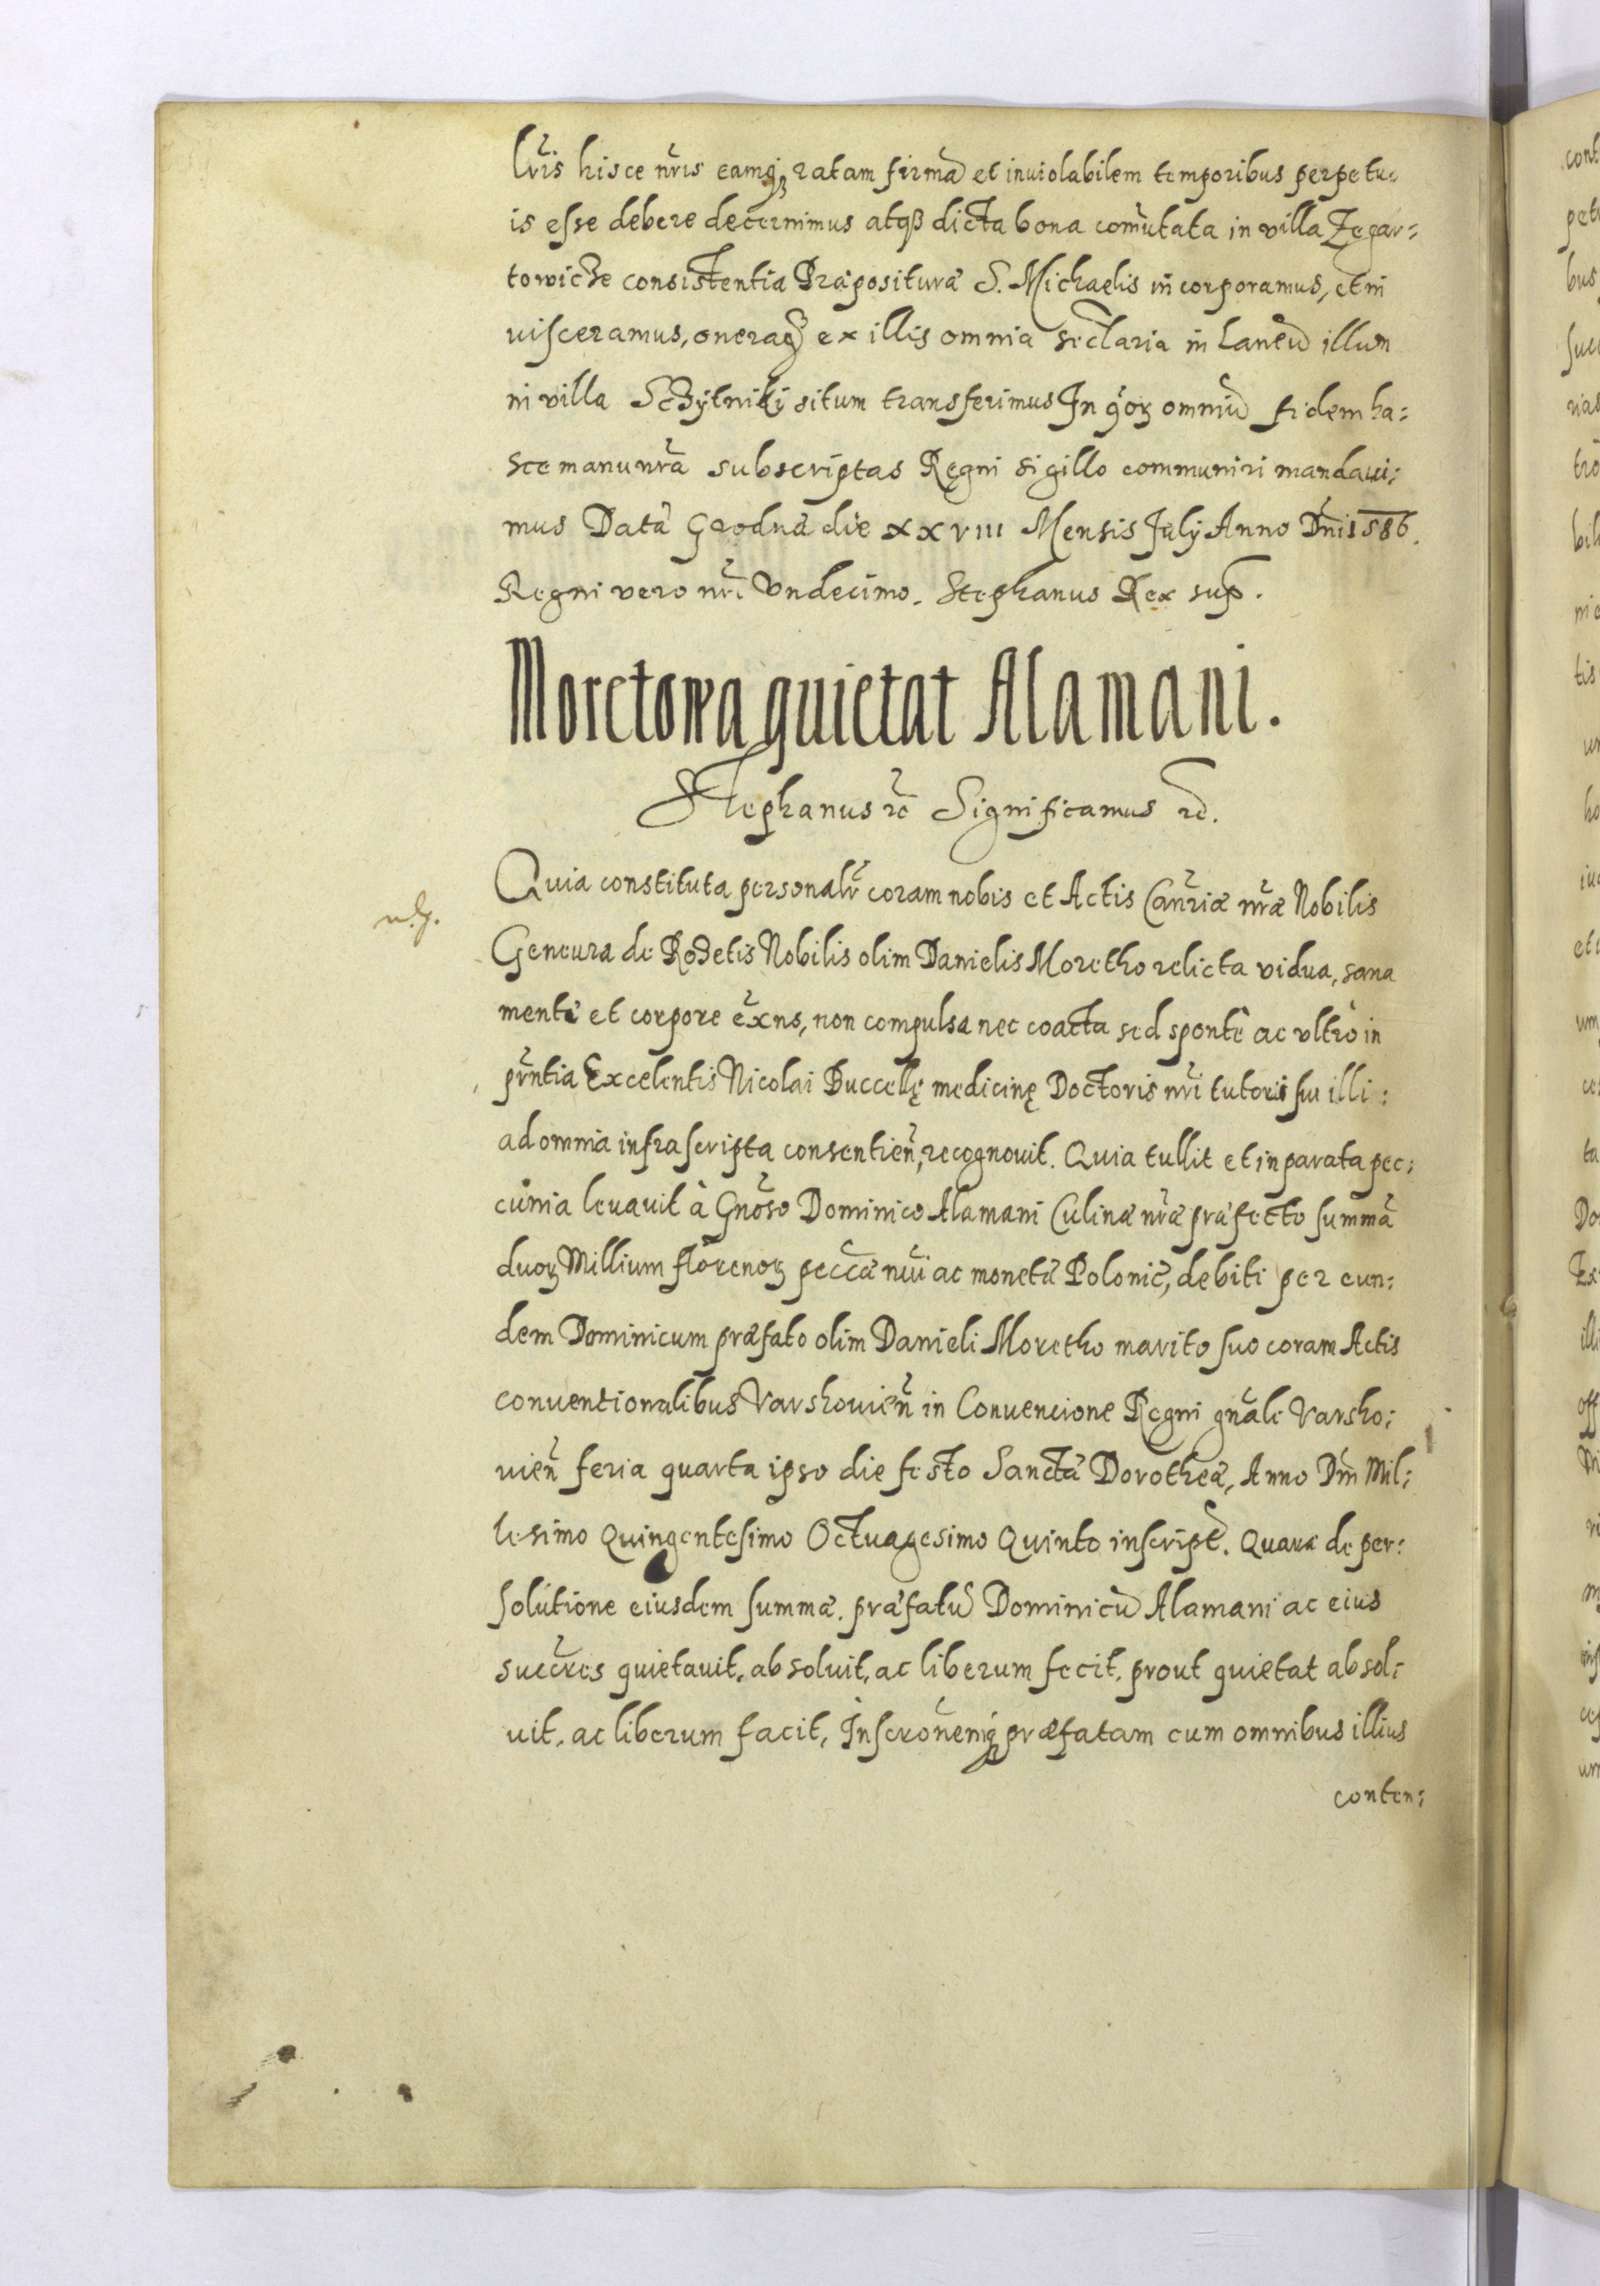 Lris hisce nris eamq₃ ratam firmã et inuiolabilem temporibus perpetu-
is esse debere decernimus atqꝫ dicta bona comutata in villa Zegar=
towicze consistentia Præpositurǣ S. Michaelis incorporamus, et in
uisceramus, oneraqꝫ ex illis omnia seclaria in Laneũ illum
in villa Sczytniki situm transferimus In quoꝝ omniũ fidem ha=
sce manu nrã subscriptas Regni sigillo communiri mandaui:
mus Datæ Grodnæ die xxviii Mensis July Anno Dni 1586.
Regni vero nri Vndecimo. Stephanus Rex sup.
Moretowa quietat Alamani.
Stephanus rc Significamus rc.
Quia constituta personalr coram nobis et Actis Canriæ nræ Nobilis
Geneura de Rozetis Nobilis olim Danielis Moretho relicta vidua, sana
mente et corpore exns, non compulsa nec coacta sed sponte ac vltrò in
prntia Excelentis Nicolai Buccellę medicinę Doctoris nri tutoris sui illi:
ad omnia infrascripta consentien, recognouit. Quia tullit et in parata pec:
cunia leuauit à Gnoso Dominico Alamani Culinæ nræ præfecto summã
duoꝝ Millium florenoꝝ peccæ nui ac monetæ Polonicæ, debiti per eun:
dem Dominicum præfato olim Danieli Moretho marito suo coram Actis
conuentionalibus Varshouien in Conuencione Regni gnale Varsho:
uien feria quarta ipso die festo Sanctæ Dorotheæ, Anno Dni Mil:
lesimo Quingentesimo Octuagesimo Quinto inscript. Quare de per:
solutione eiusdem summæ. præfatũ Dominicũ Alamani ac eius
succres quietauit, absoluit, ac liberum fecit, prout quietat absol:
uit, ac liberum facit, Inscronemqꝫ præfatam cum omnibus illius
conten: